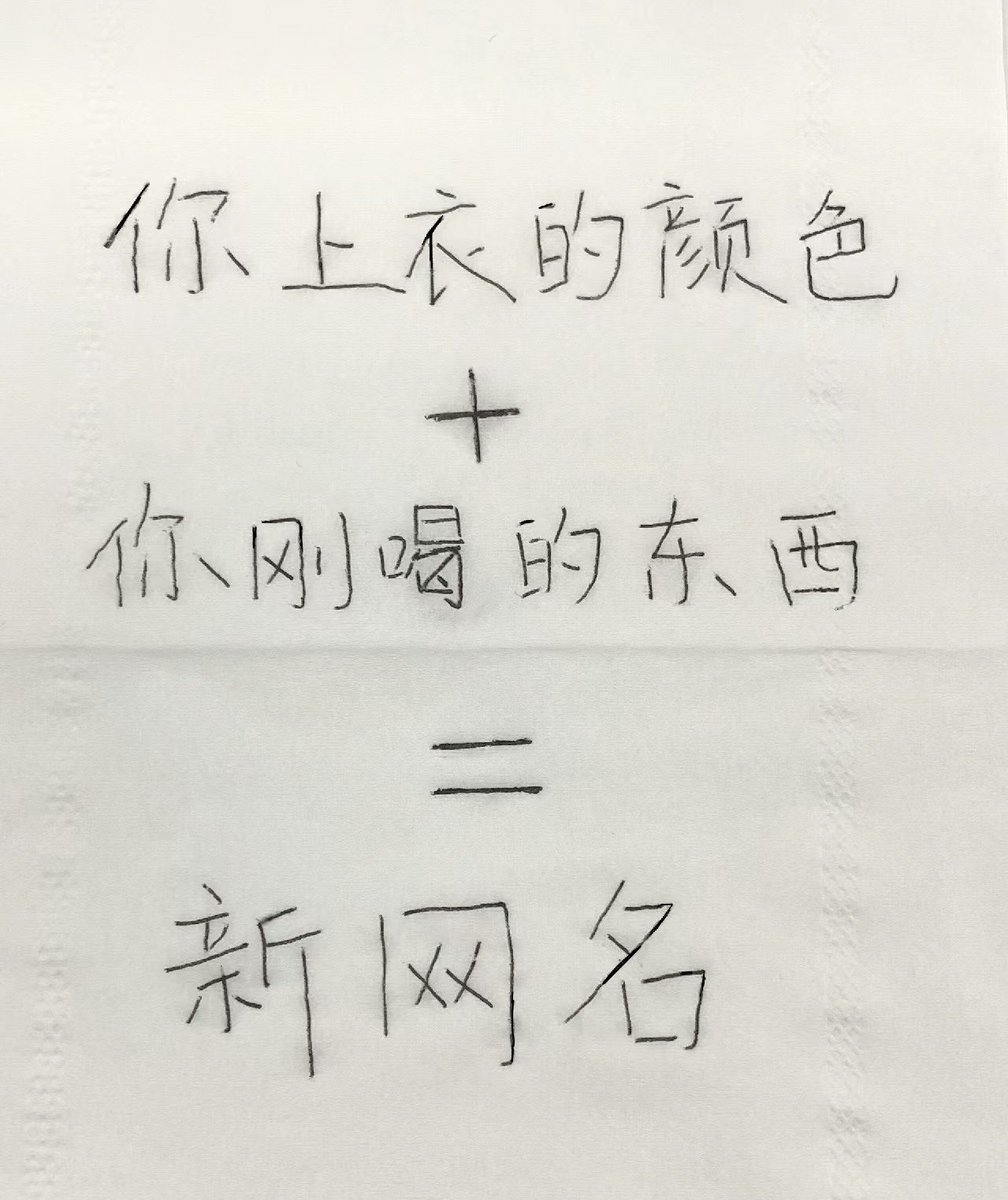 你上衣的颜色
+
你刚喝的东西
=
新网名